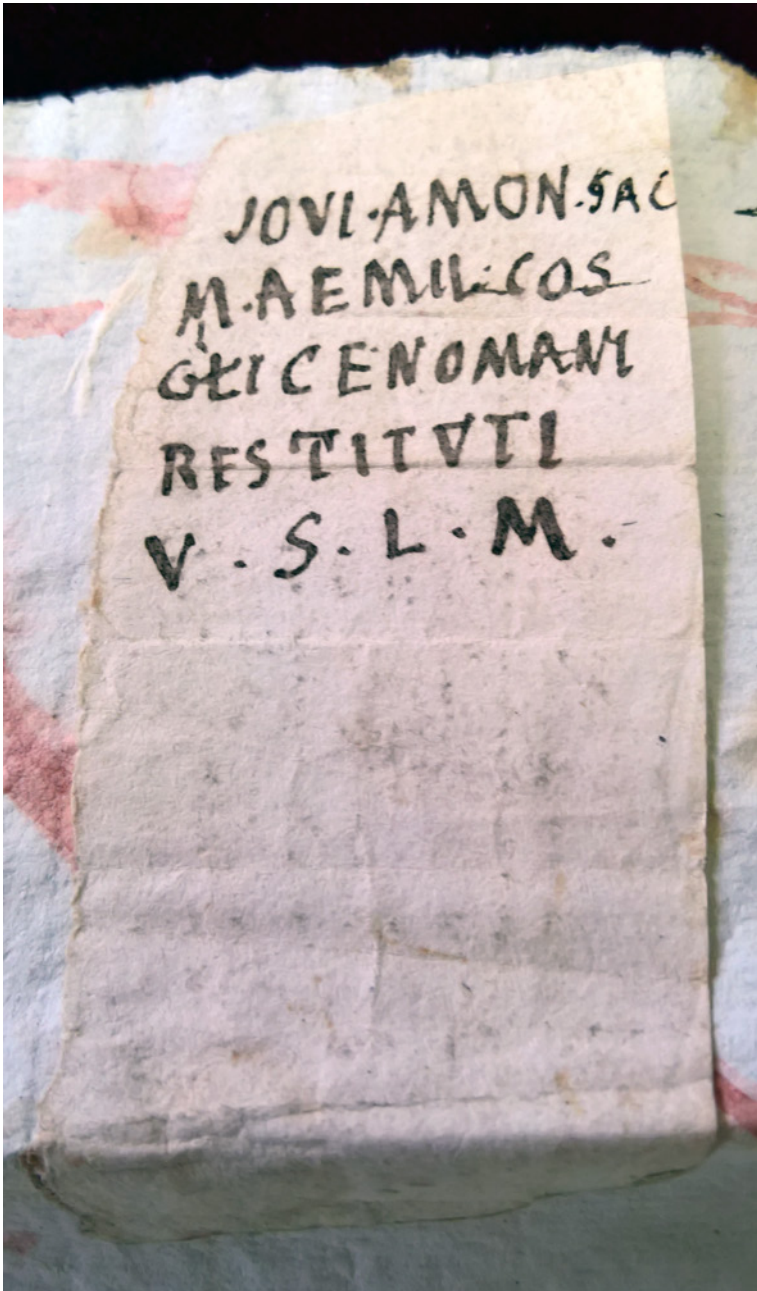 JOVI·AMON·SAC
M·AEMIL·COS
GLI CENOMANI
RESTITVTI
V · S · L · M ·